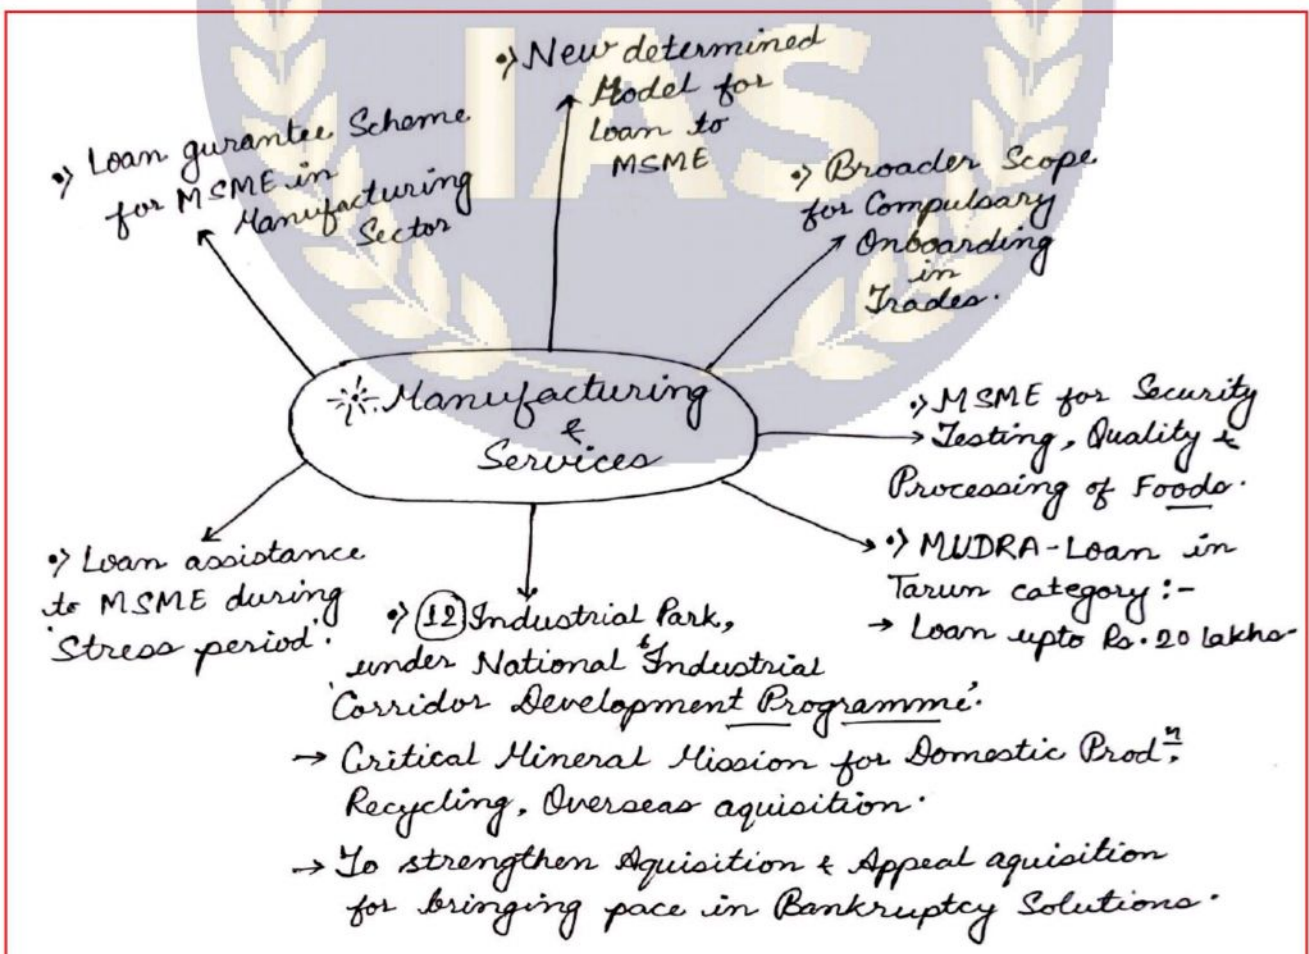 IAS
•> New determined
Model for
Loan to
MSME
•> Loan gurantee Scheme
for MSME in
Manufacturing
Sector
•> Broader Scope
for Compulsary
Onboarding
in
Trades.
Manufacturing
&
Services
•> MSME for Security
Testing, Quality &
Processing of Foods.
•> MUDRA-Loan in
Tarun category:-
→ Loan upto Rs. 20 lakhs
•> Loan assistance
to MSME during
'Stress period'.
•> 12 Industrial Park,
under National 'Industrial
Corridor Development Programme'.
→ Critical Mineral Mission for Domestic Prodⁿ,
Recycling, Overseas aquisition.
→ To strengthen Aquisition & Appeal aquisition
for bringing pace in Bankruptcy Solutions.